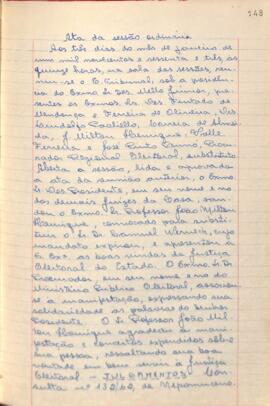 148
Ata da sessão ordinária
Aos três dias do mês de janeiro de
um mil novecentos e sessenta e três, às
quinze horas, na sala das sessões, reu-
niu-se o E. Tribunal, sob a presidên-
cia do Exmo. Sr. Des. Mello Júnior, pre-
sentes os Exmos. Srs. Des. Furtado de
Mendonça e Ferreira de Oliveira, Des.
Costa, Correia de Almei-
da, J. Milton Henrique, Valle
Ferreira e José Pinto Procu-
rador Regional Eleitoral, substituto.
Aberta a sessão, lida e aprovada
a ata da sessão anterior, o Exmo.
Sr. Des. Presidente, em seu nome e no
dos demais juízes da Casa, saudou
o Exmo. Sr. Professor João Milton
Henrique, convocado para substi-
tuir o Sr. Dr. cujo
mandato expirou, e apresentou à
S. Exa. as boas vindas da Justiça
Eleitoral do Estado. O Exmo. Sr. Dr.
Procurador, em seu nome e no do
Ministério Público Eleitoral, associou-
se à manifestação, expressando sua
solidariedade às palavras do Senhor
Presidente. O Sr. Professor João Mil-
ton Henrique agradeceu a mani-
festação e conceitos expendidos sobre
sua pessoa, ressaltando sua boa
vontade em bem servir à Justiça
Eleitoral - JULGAMENTOS: Con-
sulta nº 132/62, de Nepomuceno.